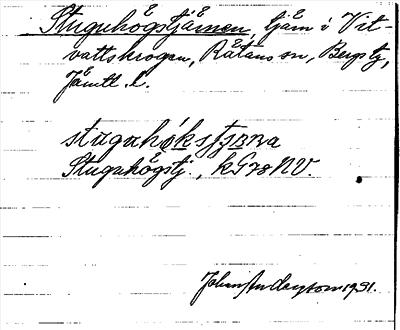 Stuguhögstjärnen, tjärn i Vit-
vattskrogen, Rätans sn, Bergs tg,
Jämtl. l.
stuguhökstjɜɳa
Stuguhögstj., kG78NV.
John Anderson 1931.